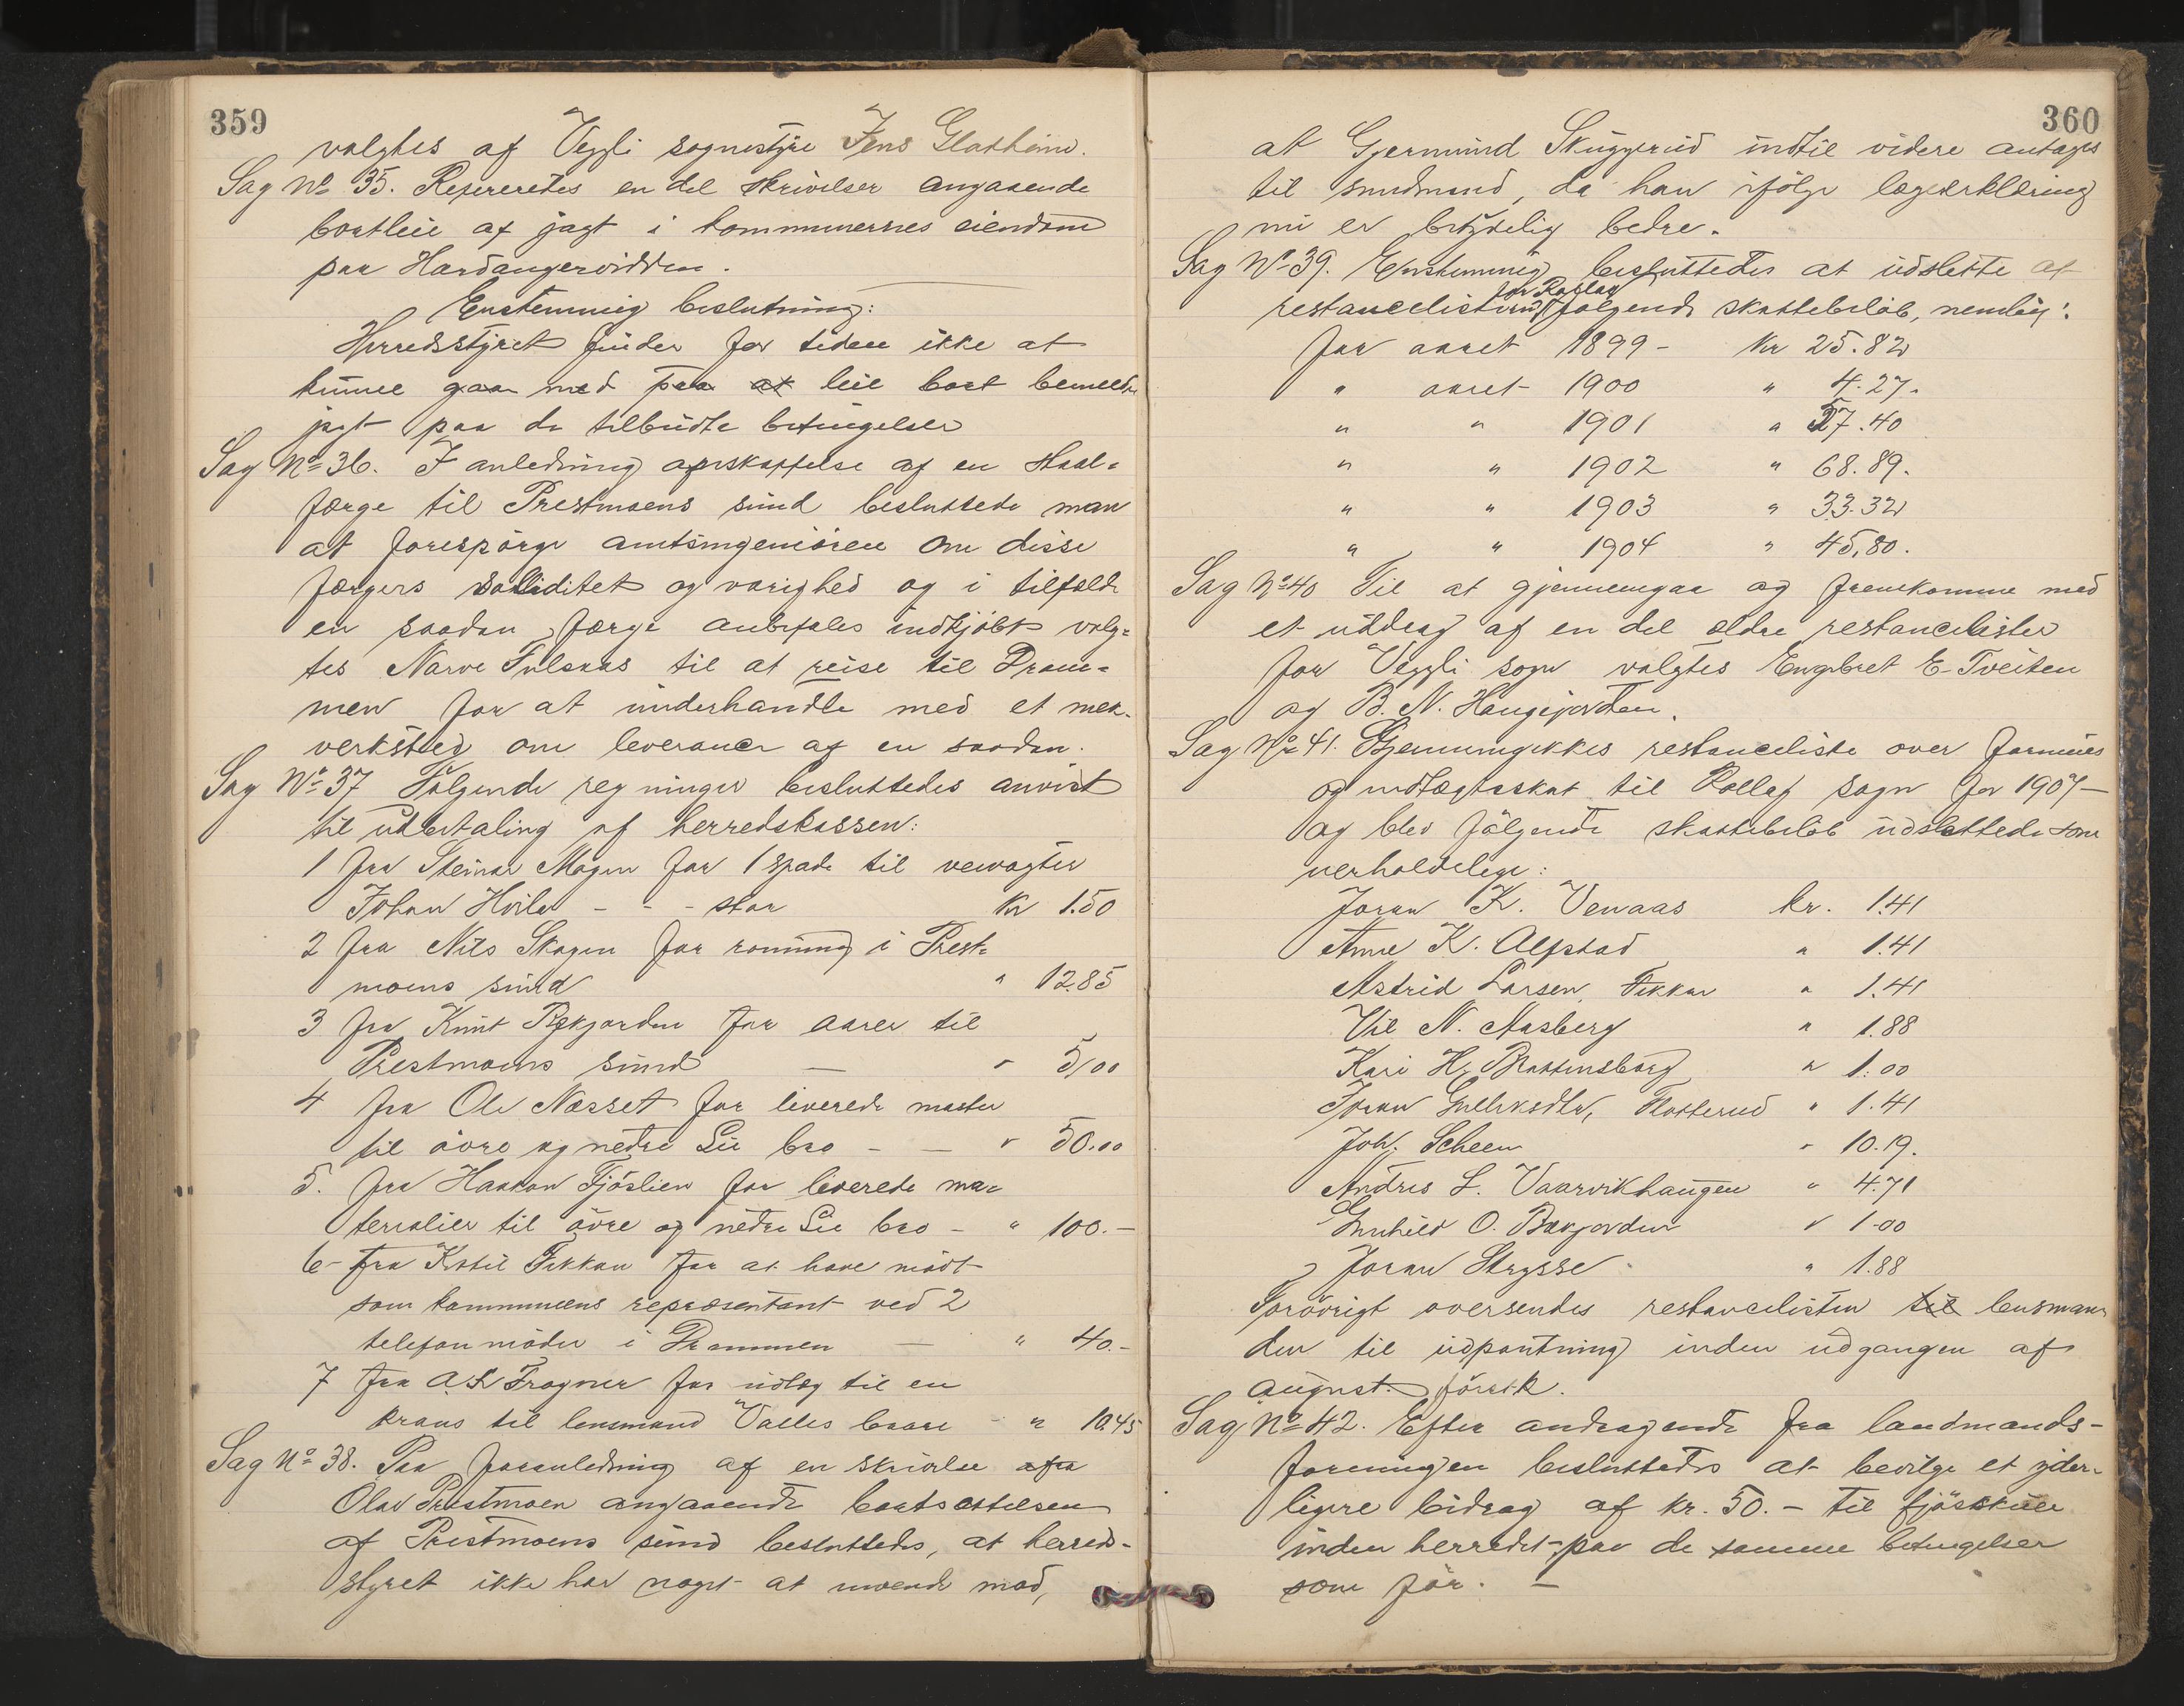 359
valgtes af Veggli sognestyre Jens Glaatheim.
Sag No 35. Refereredes en del skrivelser angaaende
bortleie af jagt i kommunernes eiendom
paa Hardangervidden.
Enstemmig beslutning:
Herredsstyret finder for tiden ikke at
kunne gaa med paa at leie bort bemeldte
jagt paa de tilbudte betingelser
Sag No 36. I anledning anskaffelse af en staal-
færge til Prestmoens sund besluttede man
at forespørge amtsingeniøren om disse
færgers soliditet og varighed og i tilfælde
en saadan færge anbefales indkjøbt valg-
tes Narve Fulsaas til at reise til Dram-
men for at underhandle med et mek.
verksted om leverance af en saadan.
Sag No 37 Følgende regninger besluttedes anvist
til udbetaling af herredskassen:
1 fra Steinar Mogen for 1 spade til veivogter
Johan Hvila - - - stor kr 1.50
2 fra Nils Skogen for roning i Prest-
moens sund " 12.85
3 fra Knut Bekjorden for aarer til
Prestmoens sund — " 5,00
4 fra Ole Næsset for leverede master
til øvre og nedre Lie bro - — " 50.00
5. fra Haakon Fjøslien for leverede ma-
terialier til øvre og nedre Lie bro - " 100.—
6- fra Kittil Tekkan for at have mødt
som kommunens repræsentant ved 2
telefonmøder i Drammen — " 40.-
7 fra A. L. Frogner for udlæg til en
krans til lensmand Valles baare - " 10.45
Sag No 38. Paa foranledning af en skrivelse afra
Olav Prestmoen angaaende bortsættelsen
af Prestmoens sund besluttedes, at herreds-
styret ikke har noget at invende mod,
360
at Gjermund Skuggerud indtil videre antages
til sundmand, da han ifølge lægeerklæring
nu er betydelig bedre.
Sag No 39. Enstemmig besluttedes at udslette af
for Rollag
restancelisterne følgende skattebeløb, nemlig:
for aaret 1899 - kr 25.82
" aaret 1900 " 4.27.
" " 1901 " 57.40
" " 1902 " 68.89.
" " 1903 " 33.32
" " 1904 " 45,80.
Sag No 40 Til at gjennemgaa og fremkomme med
et uddrag af en del ældre restancelister
for Veggli sogn valgtes Engebret E. Tveiten
og B. N. Haugejorden.
Sag No 41. Gjennemgikkes restanceliste over formues
og indtægtsskat til Rollag sogn for 1907 —
og blev følgende skattebeløb udslettede som
uerholdelige:
Joran K. Venaas kr. 1.41
Anne K. Alfstad " 1.41
Astrid Larsen, Tekkan " 1.41
Vil N. Aasberg " 1.88
Kari H. Brattensborg " 1.00
Joran Gulleksdtr, Flatterud " 1.41
Joh. Scheen " 10.19.
Andres L. Vaarvikhaugen " 4.71
Gunhild O. Bækjorden " 1-00
Joran Strysse " 1.88
Forøvrigt oversendes restancelisten til lensman-
den til udpantning inden udgangen af
august førstk.
Sag No 42. Efter andragende fra landmands-
foreningen besluttedes at bevilge et yder-
ligere bidrag af kr. 50.- til fjøsskue
inden herredet paa de samme betingelser
som før. —